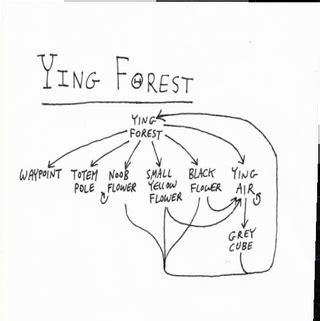 YING FOREST
YING
FOREST
WAYPOINT
TOTEM
POLE
NOOB
FLOWER
SMALL
YELLOW
FLOWER
BLACK
FLOWER
YING
AIR
GREY
CUBE